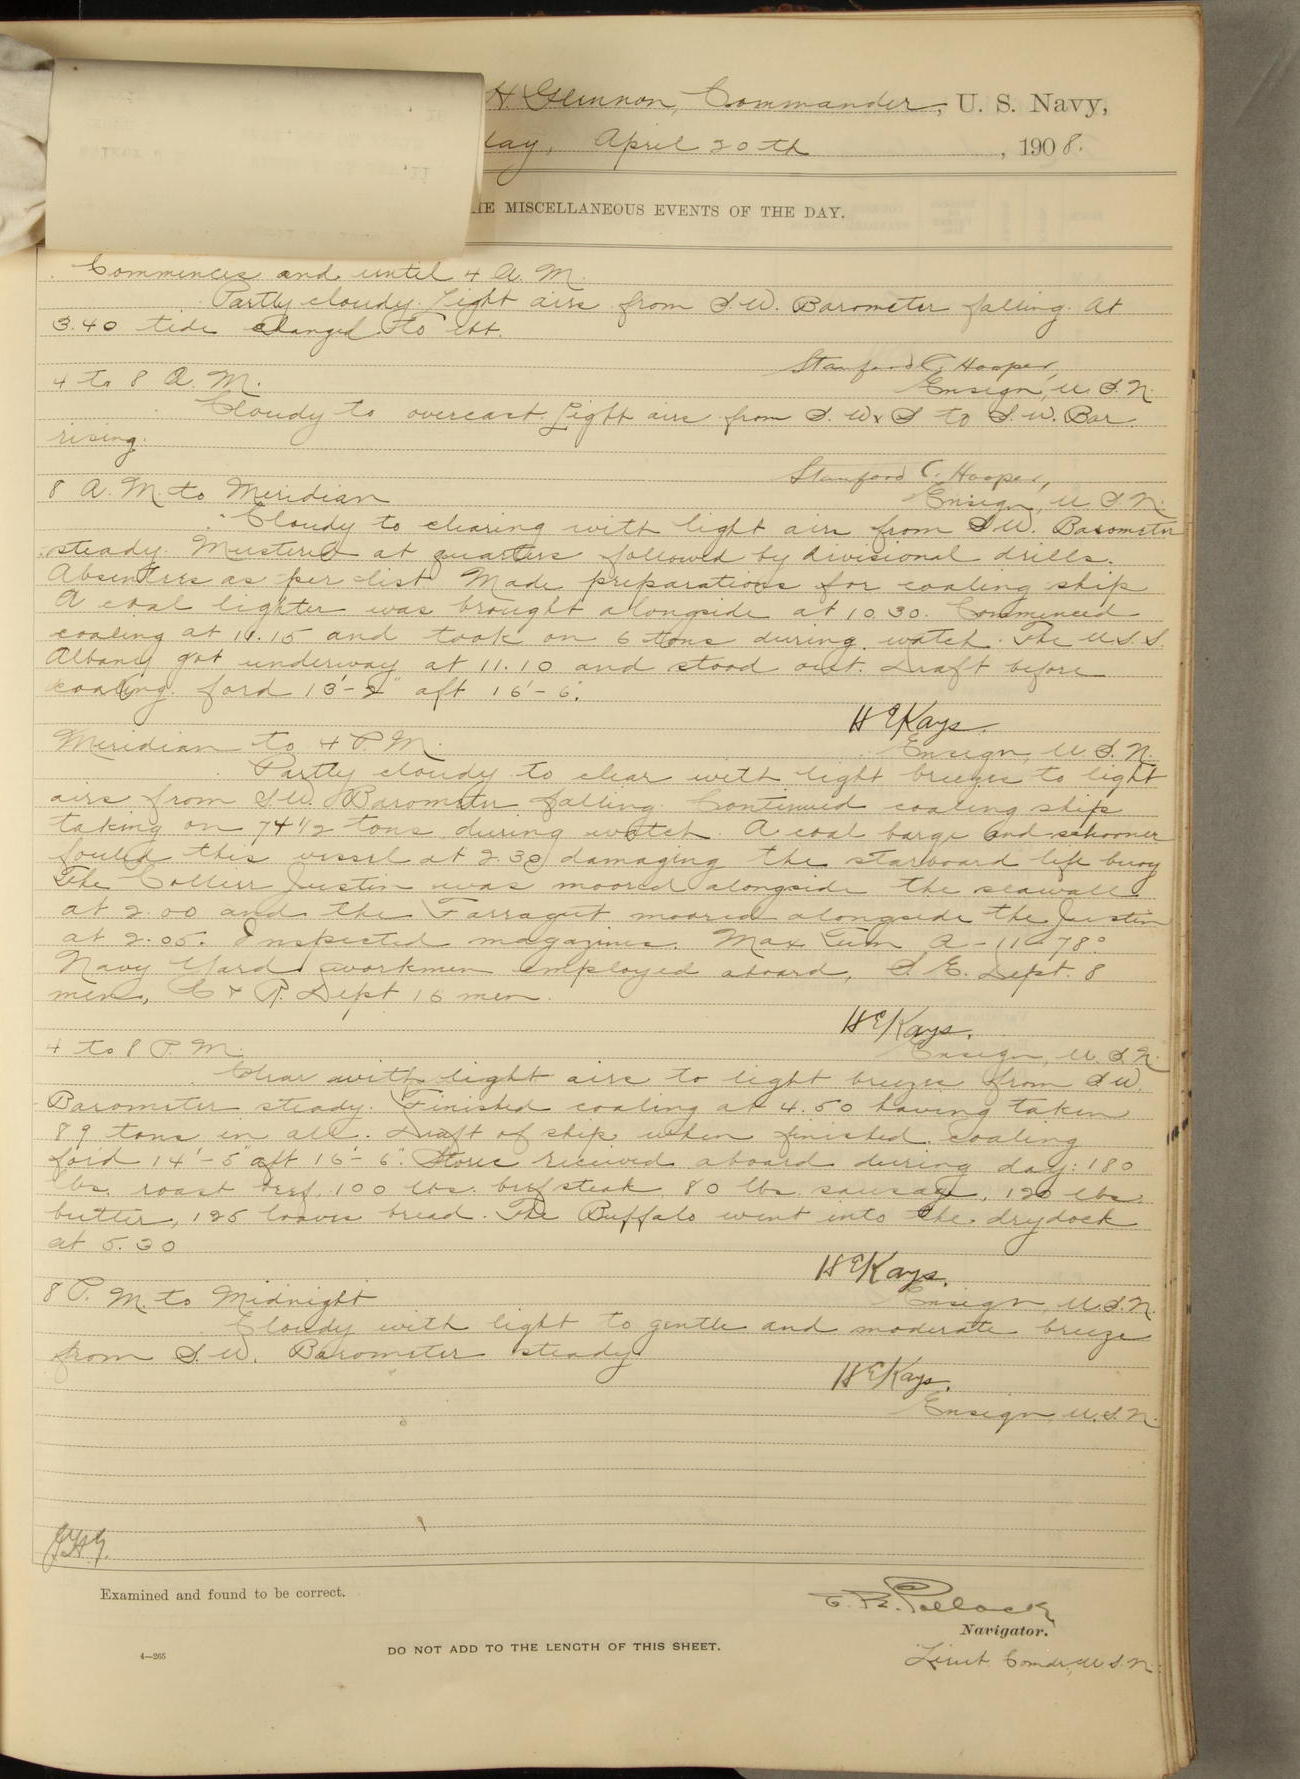 H. Glennon, Commander, U. S. Navy,
day, April 20th, 1908.
THE MISCELLANEOUS EVENTS OF THE DAY.
Commences and until 4 A. M.
Partly cloudy. Light airs from S.W. Barometer falling. At
3.40 tide changed to ebb.
Stanford C. Hooper,
4 to 8 A. M.
Ensign, U. S. N.
Cloudy to overcast. Light airs from S. W x S to S. W. Bar.
rising.
Stanford C. Hooper,
8 A. M. to Meridian
Ensign, U. S. N.
Cloudy to clearing with light airs from S W. Barometer
steady. Mustered at quarters followed by divisional drills.
Absentees as per list. Made preparations for coaling ship
A coal lighter was brought alongside at 10 30. Commenced
coaling at 11.15 and took on 6 tons during watch. The U.S.S.
Albany got underway at 11.10 and stood out. Draft before
coaling ford 13'-2" aft 16'-6".
H E Kays.
Meridian to 4 P. M.
Ensign, U. S. N.
Partly cloudy to clear with light breezes to light
airs from S.W. Barometer falling. Continued coaling ship
taking on 74 1/2 tons during watch. A coal barge and schooner
fouled this vessel at 2.30 damaging the starboard life buoy
The Collier Justin was moored alongside the seawall
at 2.00 and the Farragut moored alongside the Justin
at 2.05. Inspected magazines. Max Tem A-11-78°
Navy Yard workmen employed aboard, S. E. Dept. 8
men, C & R. Dept 16 men.
H E Kays.
4 to 8 P. M.
Ensign, U. S. N.
Clear with light airs to light breezes from S W.
Barometer steady. Finished coaling at 4.50 having taken
89 tons in all. Draft of ship when finished coaling
ford 14'-5" aft 16'-6". Stores received aboard during day: 180
lbs. roast beef, 100 lbs. beefsteak, 80 lbs. sausage, 120 lbs.
butter, 125 loaves bread. The Buffalo went into the drydock
at 5.30
H E Kays.
8 P. M. to Midnight
Ensign U.S.N.
Cloudy with light to gentle and moderate breeze
from S. W. Barometer steady
H E Kays.
Ensign U.S.N.
J.H.G.
Examined and found to be correct.
Pollock
Navigator.
4—265
DO NOT ADD TO THE LENGTH OF THIS SHEET.
Lieut. Comdr, U. S. N.